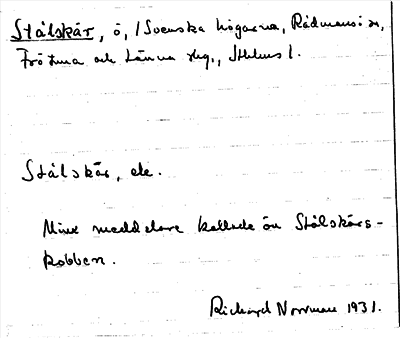 Stålskär, ö, i Svenska högarna, Rådmansö sn,
Frötuna och Länna skg., Sthlms l.
Stålskär, ö.
Mina meddelare kallade ön Stålskärs-
kobben.
Richard Norrman 1931.